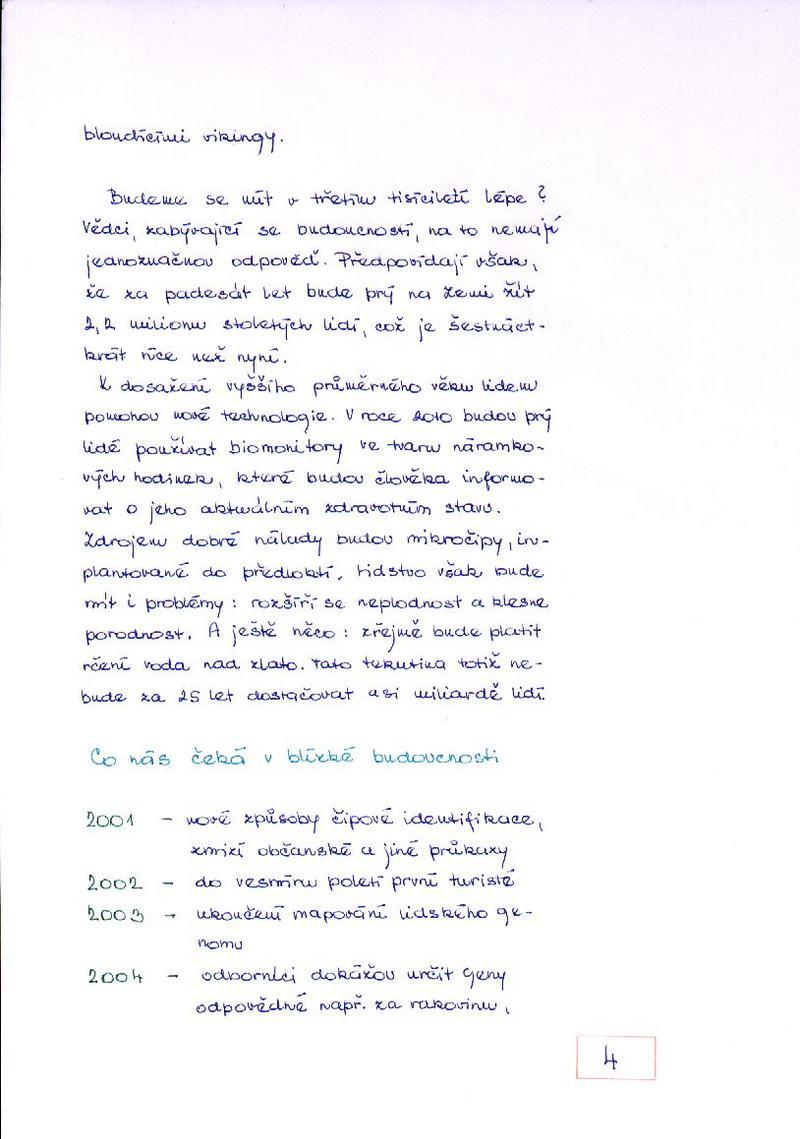 bloudícími vikingy.
Budeme se mít v třetím tisíciletí lépe?
Vědci, zabývající se budoucností, na to nemají
jednoznačnou odpověď. Předpovídají však,
že za padesát let bude prý na Zemi žít
2,2 milionu stoletých lidí, což je šestnáct-
krát více než nyní.
K dosažení vyššího průměrného věku lidem
pomohou nové technologie. V roce 2010 budou prý
lidé používat biomonitory ve tvaru náramko-
vých hodinek, které budou člověka informo-
vat o jeho aktuálním zdravotním stavu.
Zdrojem dobré nálady budou mikročipy, im-
plantované do předloktí. Lidstvo však bude
mít i problémy: rozšíří se neplodnost a klesne
porodnost. A ještě něco: zřejmě bude platit
rčení voda nad zlato. Tato tekutina totiž ne-
bude za 25 let dostačovat asi miliardě lidí.
Co nás čeká v blízké budoucnosti
2001 - nové způsoby čipové identifikace,
zmizí občanské a jiné průkazy
2002 - do vesmíru poletí první turisté
2003 - ukončení mapování lidského ge-
nomu
2004 - odborníci dokážou určit geny
odpovědné např. za rakovinu,
4